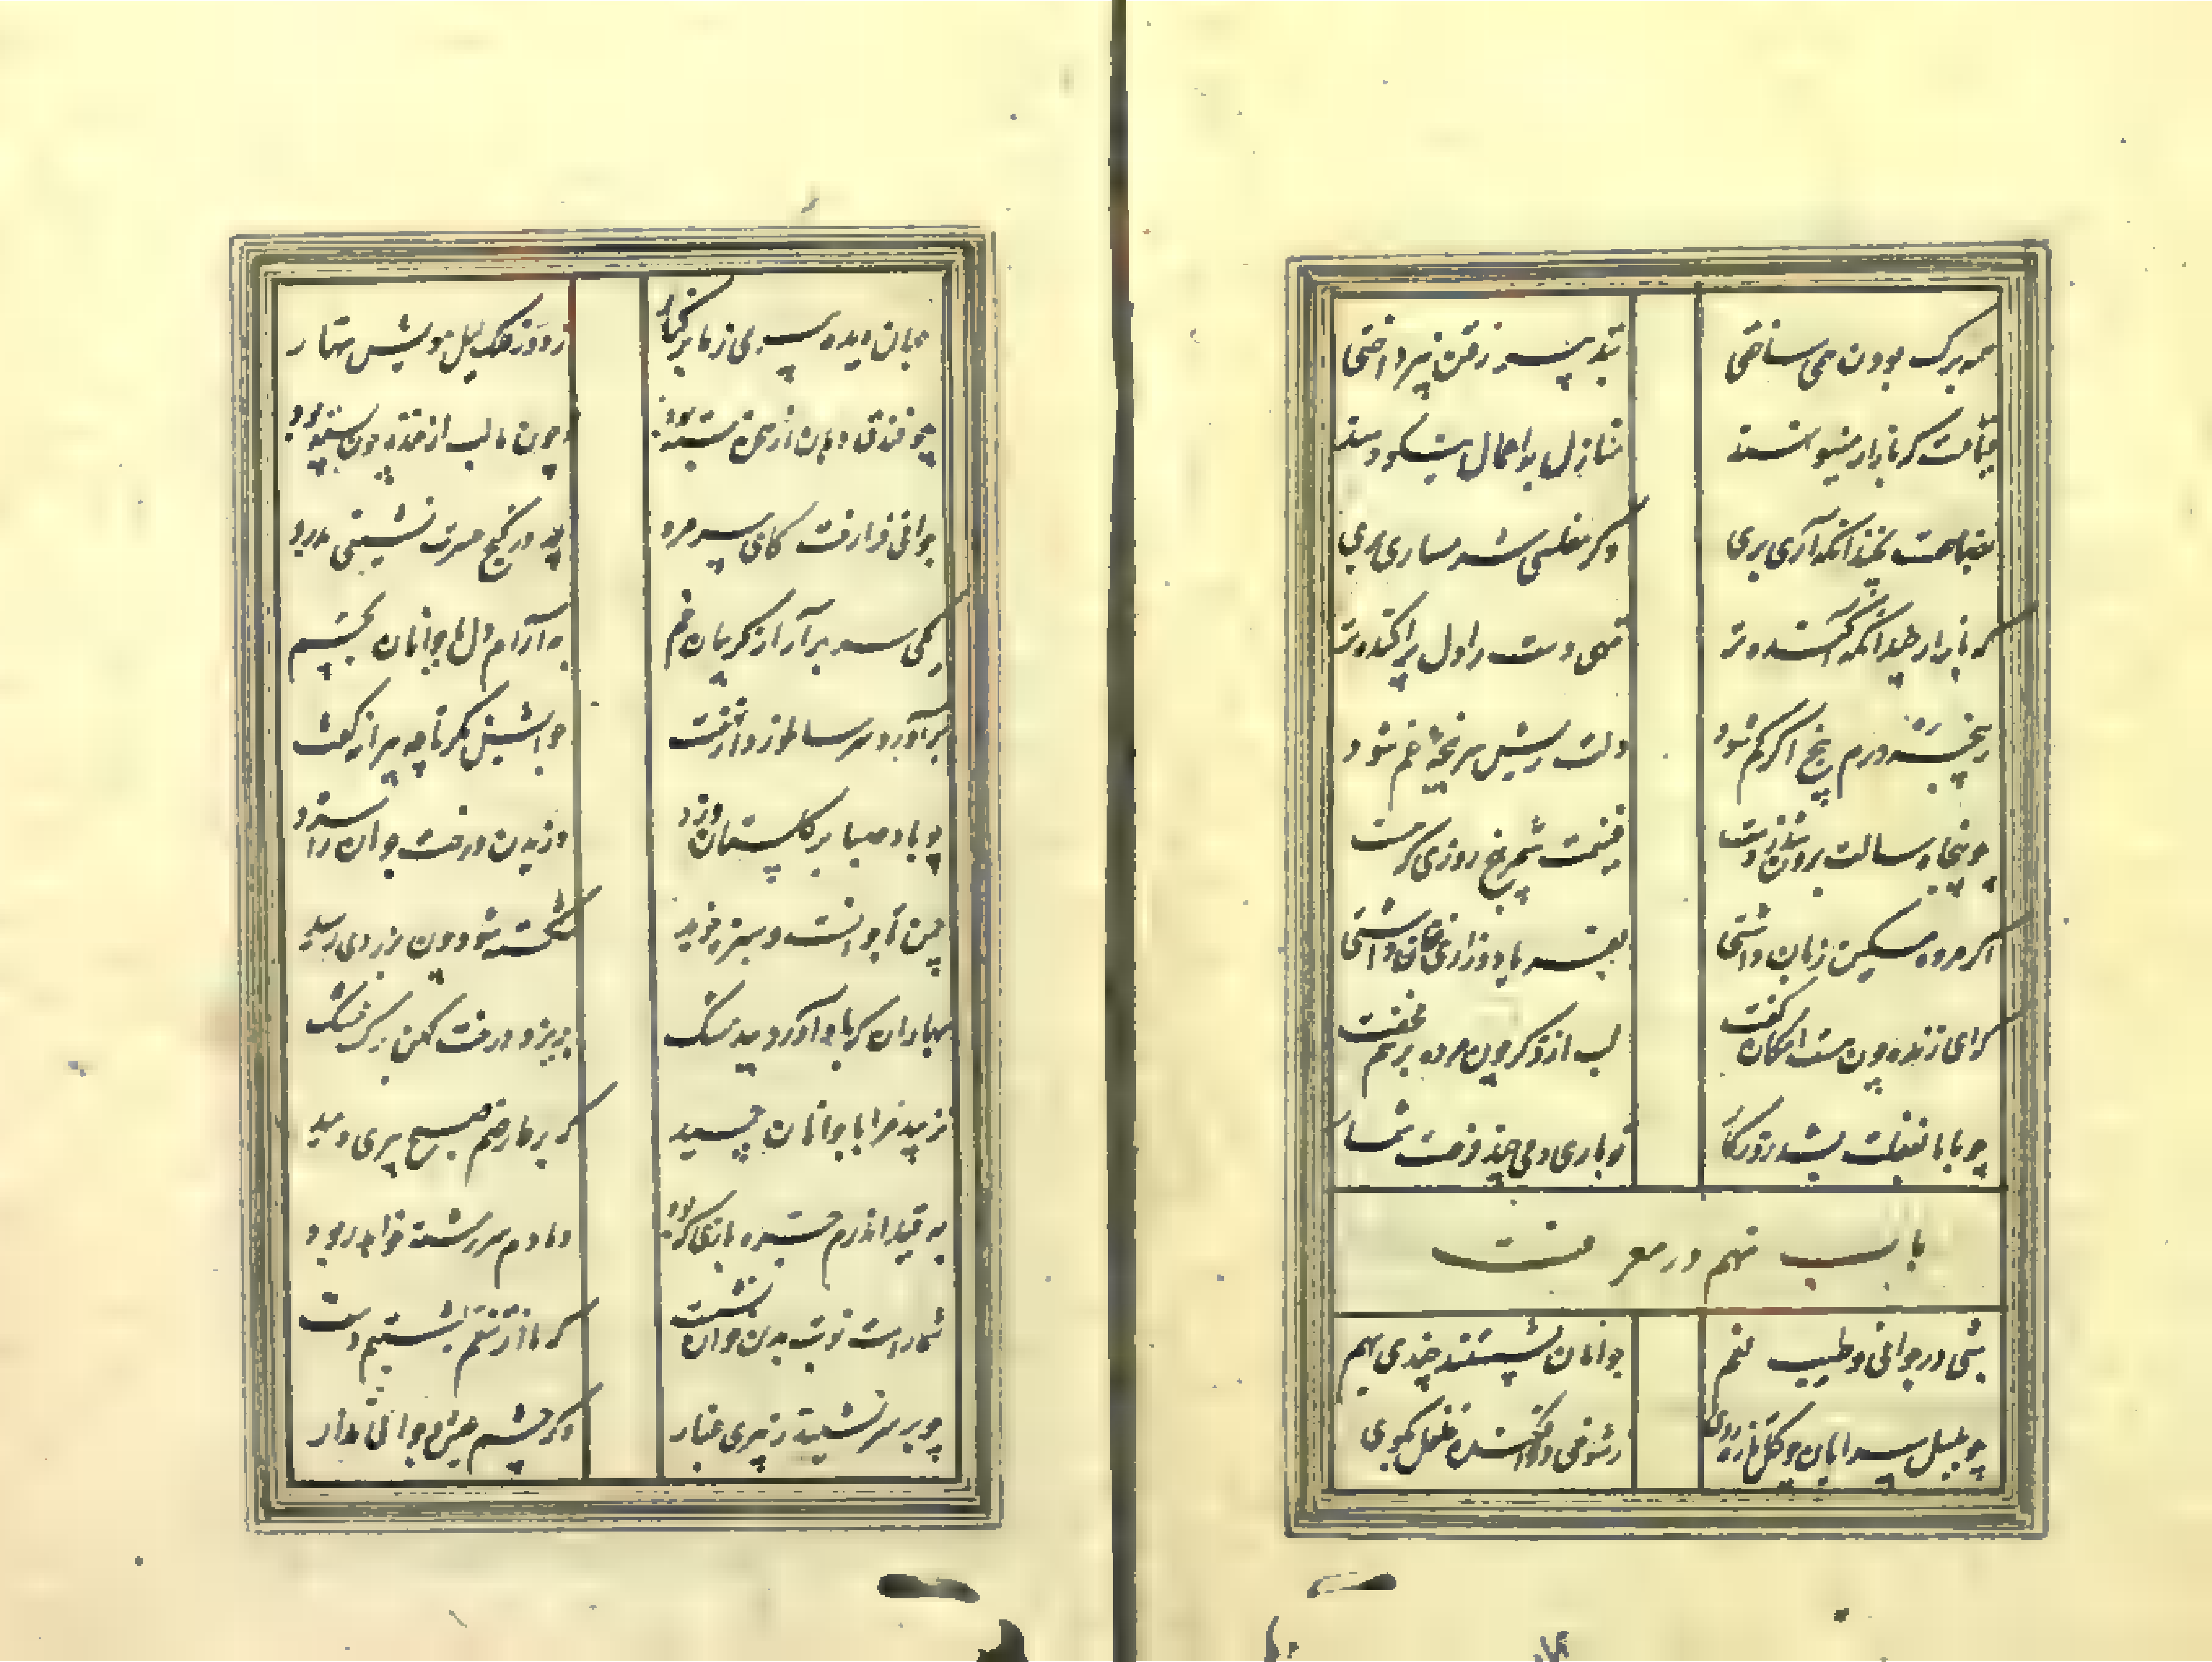 همه برگ بودن همی ساختی بتدبیر رفتن نپرداختی
قیامت که بازار مینو نهند منازل به اعمال نیکو دهند
بضاعت بچندانکه آری بری وگر مفلسی شرمساری بری
که بازار چندانکه آکنده‌تر تهی دست را دل پراکنده‌تر
ز پنجه درم پنج اگر کم شود دلت ریش سرپنجه غم شود
چو پنجاه سالت برون شد ز دست غنیمت شمر پنج روزی که هست
اگر مرده مسکین زبان داشتی بفریاد و زاری فغان داشتی
که ای زنده چون هست امکان گفت لب از ذکر چون مرده بر هم مخفت
چو ما را بغفلت بشد روزگار تو باری دمی چند فرصت شمار
باب نهم در معرفت
شبی در جوانی و طیب نعم جوانان نشستیم چندی بهم
چو بلبل سرایان چو گل تازه روی ز شوخی در افکنده غلغل بکوی
جهان دیده پیری ز ما بر کنار ز دور فلک لیل مویش نهار
چو فندق دهان از سخن بسته بود نه چون ما لب از خنده چون پسته بود
جوانی فرا رفت کای پیرمرد چه در کنج حسرت نشینی بدرد
یکی سر برآر از گریبان غم به آرام دل با جوانان بچم
برآورد سر سالخورد از نهفت جوابش نگر تا چه پیرانه گفت
چو باد صبا بر گلستان وزد چمیدن درخت جوان را سزد
چمد تا جوانست و سرسبز خوید شکسته شود چون بزردی رسید
بهاران که باد آورد بید مشک بریزد درخت کهن برگ خشک
نزیبد مرا با جوانان چمید که بر عارضم صبح پیری دمید
به قید اندرم جره بازی که بود دمادم سر رشته خواهد ربود
شما راست نوبت بدین خوان نشست که ما از تنعم بشستیم دست
چو بر سر نشیند ز پیری غبار دگر چشم عیش جوانی مدار